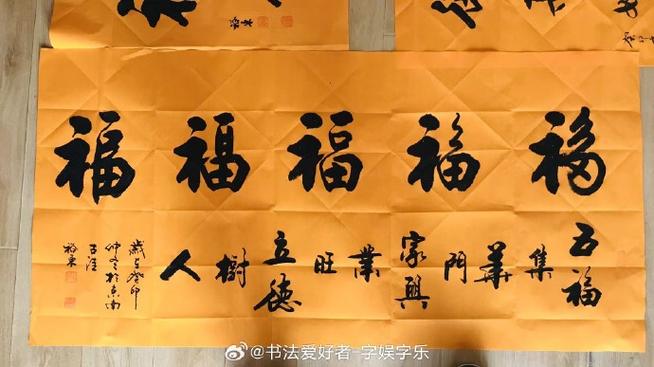 福福福福福
五福
集
華
門
家興
業
旺
立德
樹
人
歲在癸卯
仲冬於京南
裕東
@书法爱好者-字娱字乐